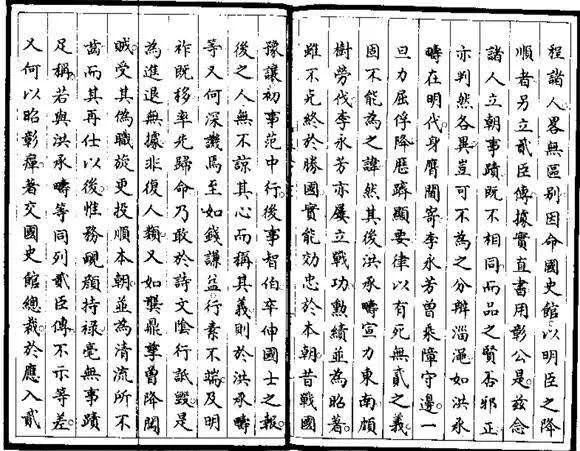 程諸人畧無區别因命國史館以明臣之降
順者另立貳臣傳據實直書用彰公是兹念
諸人立朝事蹟既不相同而品之賢否邪正
亦判然各異豈可不為之分辨淄澠如洪承
疇在明代身膺閫寄李永芳曾乘障守邊一
旦力屈俘降歴躋顯要律以有死無貳之義
固不能為之諱然其後洪承疇宣力東南頗
樹勞伐李永芳亦屢立戰功勲績並為昭著
雖不克終於勝國實能効忠於本朝昔戰國
豫讓初事范中行後事智伯卒伸國士之報
後之人無不諒其心而稱其義則於洪承疇
等又何深譏焉至如錢謙益行素不端及明
祚既移率先歸命乃敢於詩文陰行詆毁是
為進退無據非復人類又如龔鼎孳曾降闖
賊受其偽職旋更投順本朝並為清流所不
齒而其再仕以後惟務靦顔持禄毫無事蹟
足稱若與洪承疇等同列貳臣傳不示等差
又何以昭彰癉著交國史館總裁於應入貳